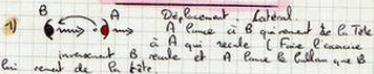 1) B A Déplacement Latéral.
A lance à B qui remet de la Tête
à A qui recule (Faire l'exercice
inversement B recule et A lance le ballon que B
lui remet de la tête.